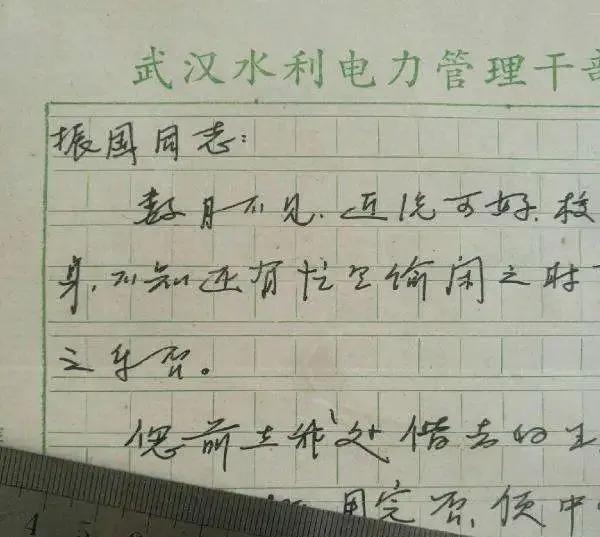 武汉水利电力管理干部
振国同志：
数月不见，近况可好，校
身，不知还有忙里偷闲之时
之乐否。
您前在我处借去的
用完否，便中
4 5